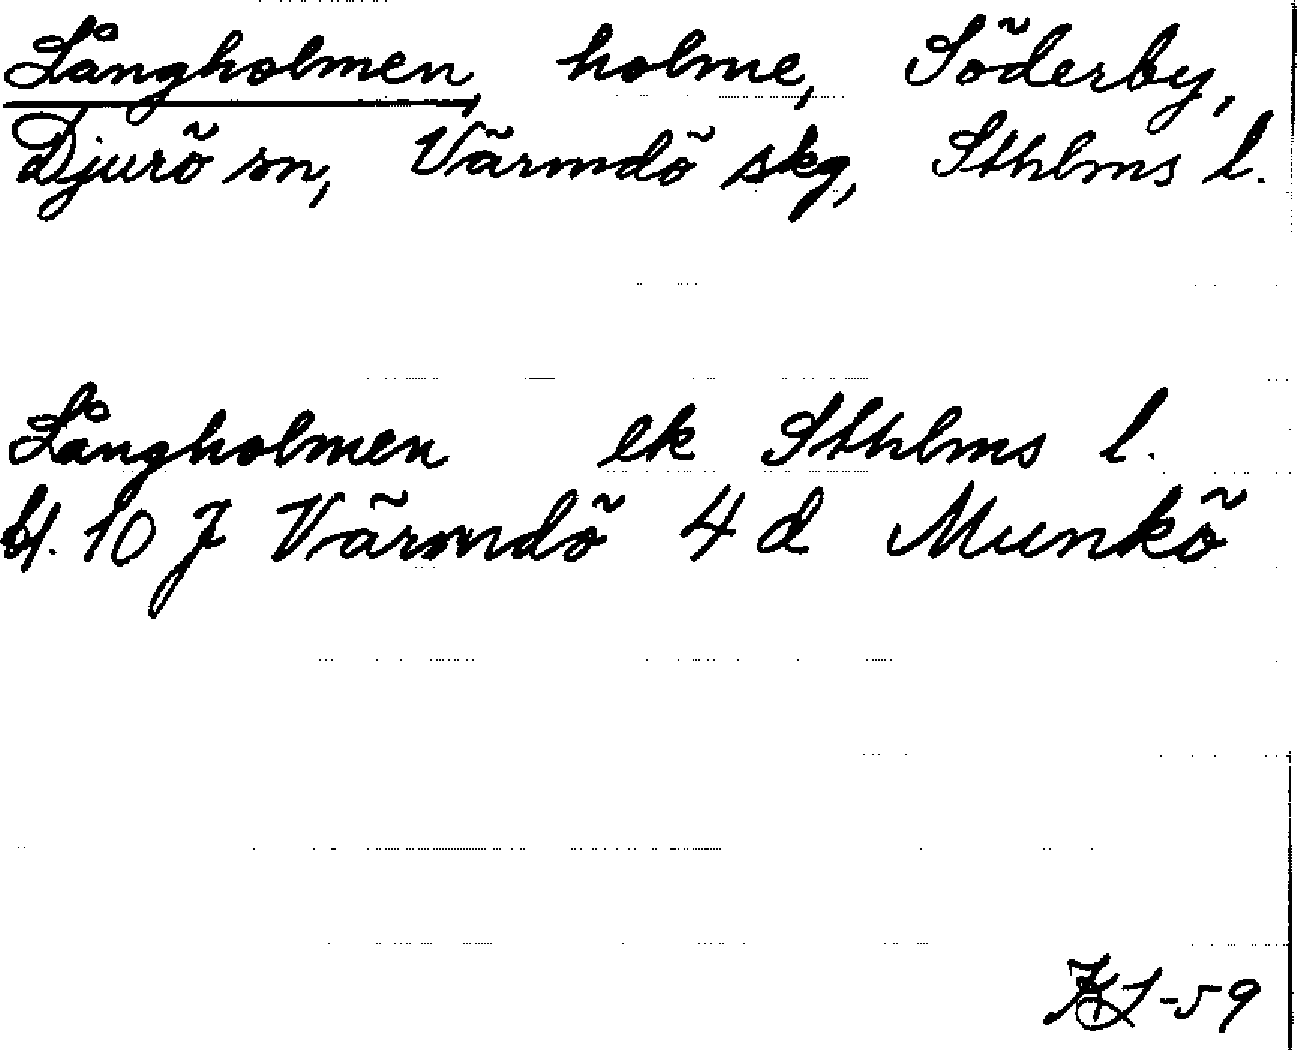 Långholmen, holme, Söderby,
Djurö sn, Värmdö skg, Sthlms l.
Långholmen ek Sthlms l.
bl. 10 J Värmdö 4 d Munkö
-59